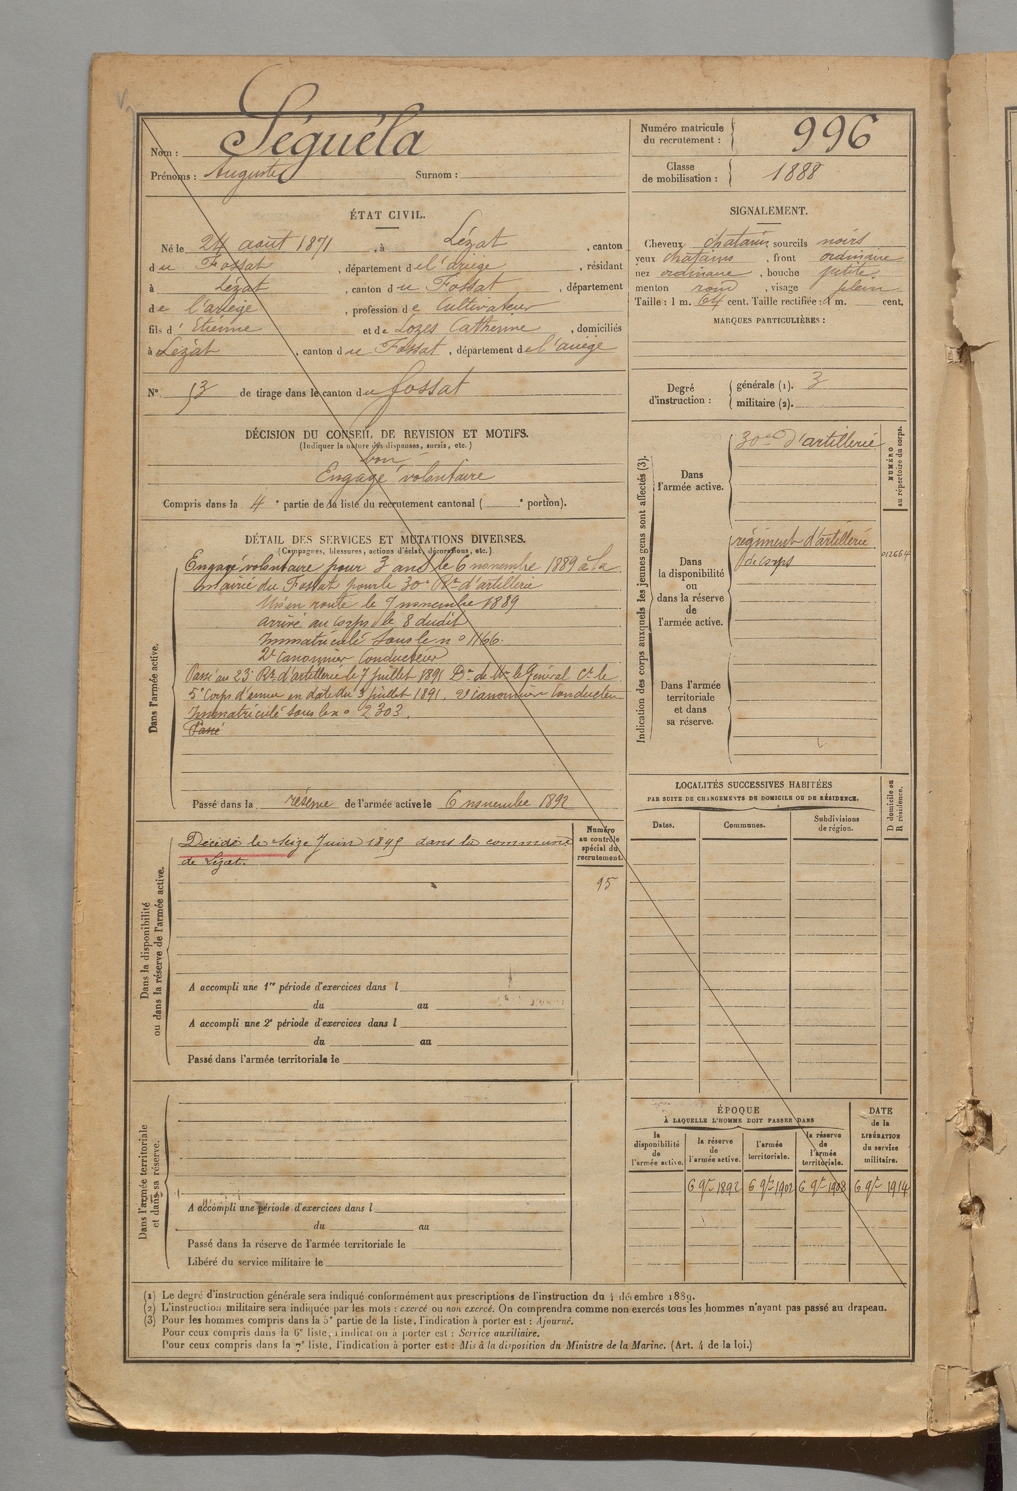 Nom : Séguéla
Prénoms : Auguste Surnom :
Numéro matricule du recrutement : 996
Classe de mobilisation : 1888
ÉTAT CIVIL.
Né le 24 août 1871, à Lézat, canton
du Fossat, département de l'ariège, résidant
à Lézat, canton du Fossat, département
de l'ariège, profession de Cultivateur
fils d'Etienne et de Lozes Catherine, domiciliés
à Lézat, canton du Fossat, département de l'ariège
N° 53 de tirage dans le canton du fossat
SIGNALEMENT.
Cheveux chatains sourcils noirs
yeux chatains, front ordinaire
nez ordinaire, bouche petite
menton rond, visage plein
Taille : 1 m. 64 cent. Taille rectifiée : 1 m. cent.
MARQUES PARTICULIÈRES :
Degré d'instruction : générale (1). 3
militaire (2).
DÉCISION DU CONSEIL DE REVISION ET MOTIFS.
(Indiquer la nature des dispenses, sursis, etc.)
bon
Engagé volontaire
Compris dans la 4e partie de la liste du recrutement cantonal ( e portion).
DÉTAIL DES SERVICES ET MUTATIONS DIVERSES.
(Campagnes, blessures, actions d'éclat, décorations, etc.)
Dans l'armée active.
Engagé volontaire pour 3 ans le 6 novembre 1889 à la
mairie du Fossat pour le 30e Rt d'artillerie
Mis en route le 7 novembre 1889
arrivé au corps le 8 dudit
Immatriculé sous le n° 1166.
2e Canonnier Conducteur
Passé au 23e Rt d'artillerie le 7 juillet 1891 Dn de Mr le Général Ct le
5e Corps d'armée en date du 3 juillet 1891. 2e canonnier Conducteur
Immatriculé sous le n° 2303.
Passé
Passé dans la réserve de l'armée active le 6 novembre 1892
Indication des corps auxquels les jeunes gens sont affectés (3).
NUMÉRO au répertoire du corps.
Dans l'armée active. 30e d'artillerie
Dans la disponibilité ou dans la réserve de l'armée active. régiment d'artillerie
de corps
012664
Dans l'armée territoriale et dans sa réserve.
LOCALITÉS SUCCESSIVES HABITÉES
PAR SUITE DE CHANGEMENTS DE DOMICILE OU DE RÉSIDENCE.
D domicile ou R résidence.
Dates. Communes. Subdivisions de région.
Dans la disponibilité ou dans la réserve de l'armée active.
Numéro au contrôle spécial du recrutement.
15
Décédé le seize Juin 1895 dans la commune
de Lézat.
A accompli une 1re période d'exercices dans l
du au
A accompli une 2e période d'exercices dans l
du au
Passé dans l'armée territoriale le
Dans l'armée territoriale et dans sa réserve.
A accompli une période d'exercices dans l
du au
Passé dans la réserve de l'armée territoriale le
Libéré du service militaire le
ÉPOQUE
À LAQUELLE L'HOMME DOIT PASSER DANS
la disponibilité de l'armée active.
la réserve de l'armée active.
l'armée territoriale.
la réserve de l'armée territoriale.
DATE de la LIBÉRATION du service militaire.
6 9bre 1892 6 9bre 1902 6 9bre 1908 6 9bre 1914
(1) Le degré d'instruction générale sera indiqué conformément aux prescriptions de l'instruction du 4 décembre 1889.
(2) L'instruction militaire sera indiquée par les mots : exercé ou non exercé. On comprendra comme non exercés tous les hommes n'ayant pas passé au drapeau.
(3) Pour les hommes compris dans la 5e partie de la liste, l'indication à porter est : Ajourné.
Pour ceux compris dans la 6e liste, l'indication à porter est : Service auxiliaire.
Pour ceux compris dans la 7e liste, l'indication à porter est : Mis à la disposition du Ministre de la Marine. (Art. 4 de la loi.)